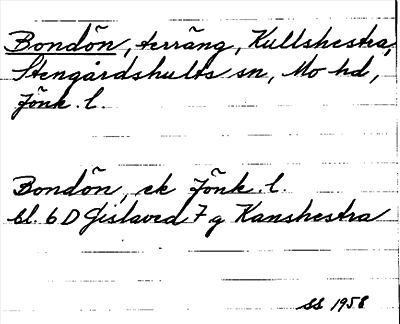 Bondön, terräng, Kullshestra,
Stengårdshults sn, Mo hd,
Jönk. l.
Bondön, ek Jönk. l.
bl. 6 D Gislaved 7 g Kanshestra
SS 1958